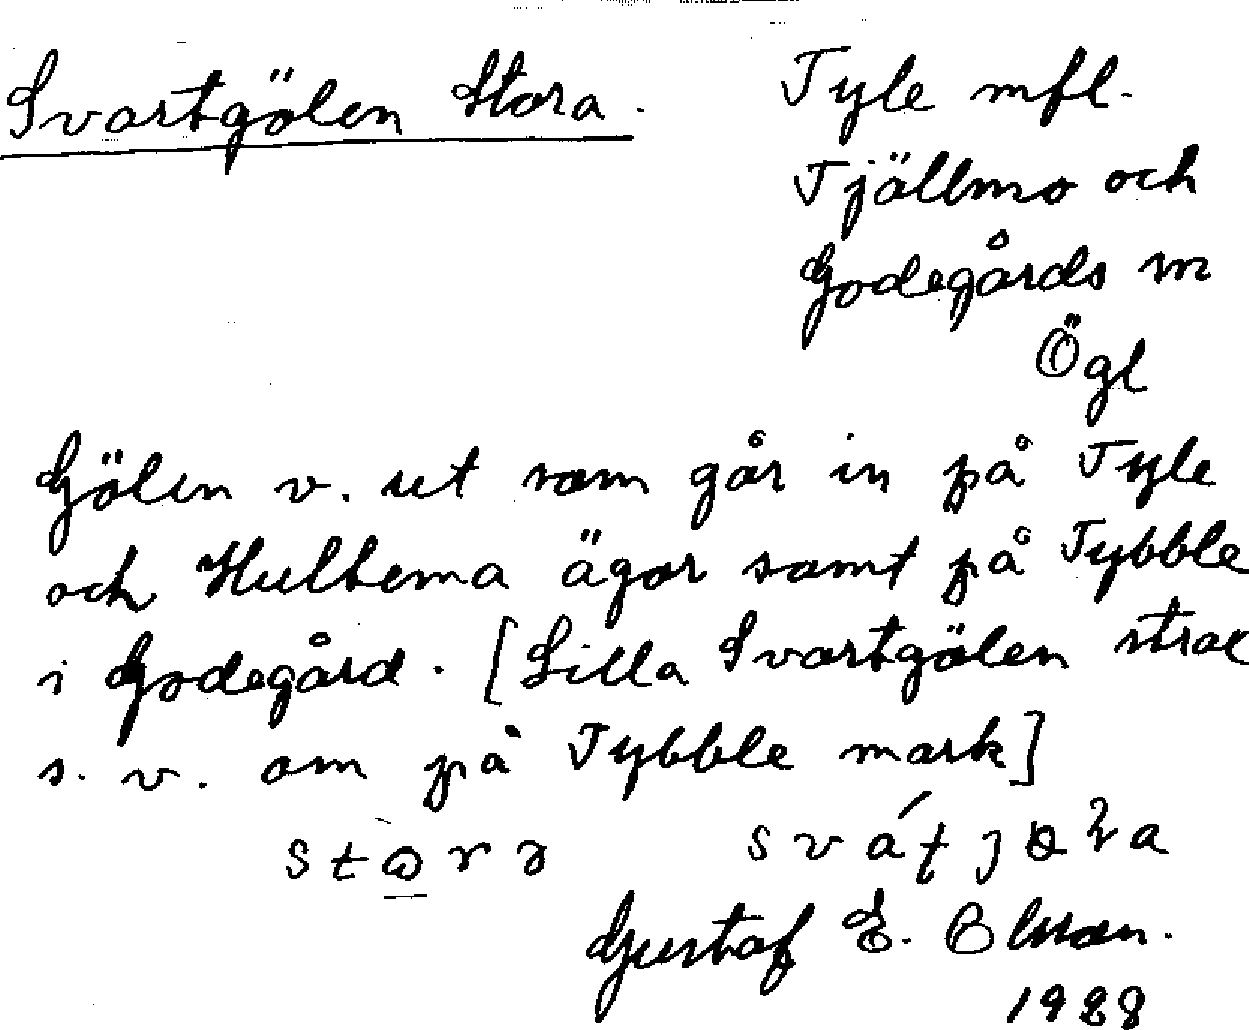 Svartgölen Stora.
Tyle mfl.
Tjällmo och
Godegårds sn
Ögl
Gölen v. ut som går in på Tyle
och Hultema ägor samt på Tybble
i Godegård. [Lilla Svartgölen strax
s. v. om på Tybble mark]
Gustaf E. Olsson.
1928